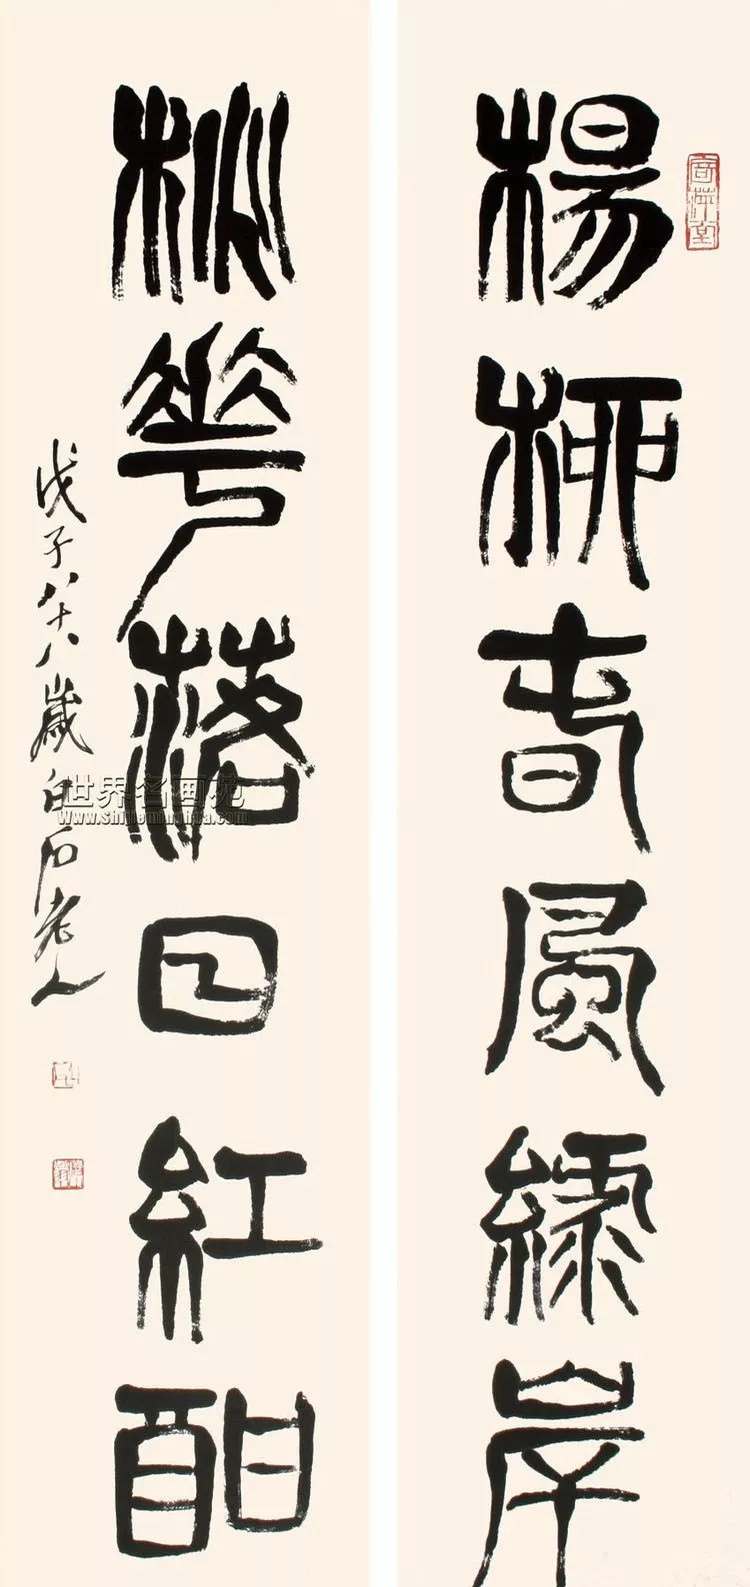 寄萍堂
楊柳春風綠岸
桃花落日紅酣
戊子八十八歲白石老人
世界名画苑
www.shijieminghua.com